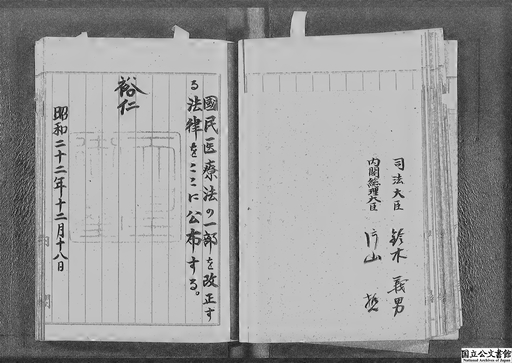 司法大臣 鈴木義男
内閣総理大臣 片山哲
國民医療法の一部を改正す
る法律をここに公布する。
裕仁
昭和二十二年十二月十八日
内閣
国立公文書館
National Archives of Japan